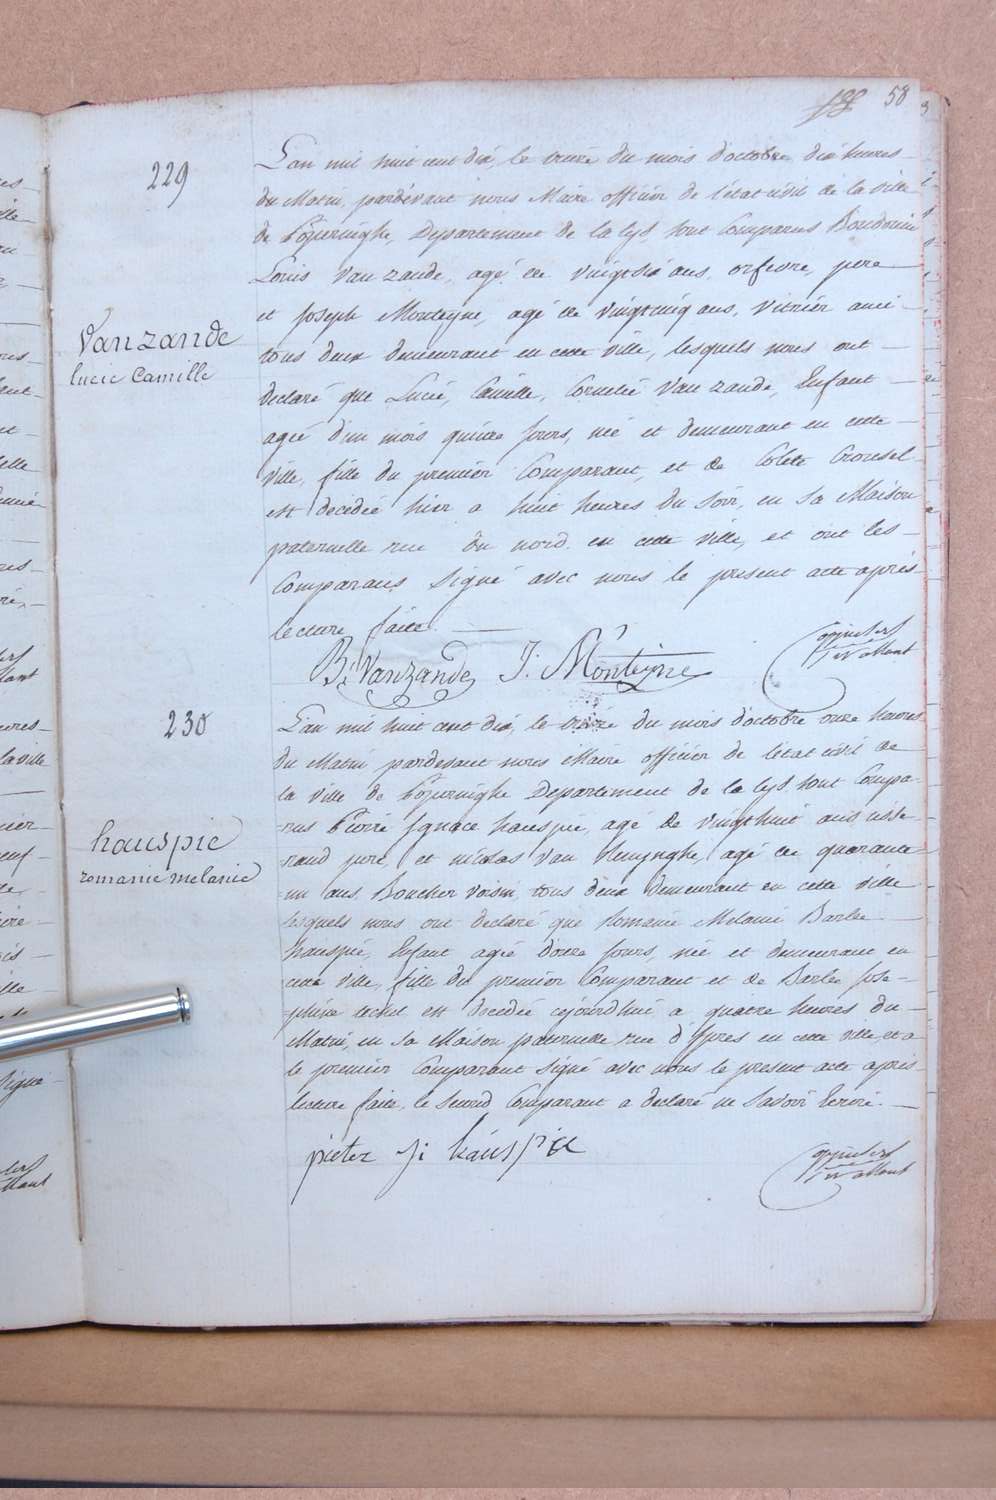 58
229
Vanzande
lucie Camille
L'an mil huit cent dix, le treize du mois d'octobre dix heures
du Matin, pardevant nous Maire officier de l'état civil de la ville
de Poperinghe, Departement de la lys, sont Comparus Boudouin
Louis Van zande, agé de vingt six ans, orfevre, pere
et Joseph Monteyne, agé de vingt cinq ans, vitrier ami
tous deux demeurant en cette ville, lesquels nous ont
declaré que Lucie, Camille, Cornelie Van zande, Enfant
agée d'un mois quinze jours, née et demeurant en cette
ville, fille du premier Comparant, et de Colette Crousel
est decedée hier a huit heures du Soir, en Sa Maison
paternelle rue du nord en cette ville, et ont les
Comparans, Signé avec nous le present acte après
lecture faite.
B: Vanzande J: Monteyne
230
hauspie
romanie melanie
L'an mil huit cent dix, le treize du mois d'octobre onze heures
du Matin pardevant nous Maire officier de l'état civil de
la ville de Poperinghe Departement de la lys sont Compa-
-rus Pierre Ignace hauspie, agé de vingt huit ans tisse-
rand pere, et nicolas Van Renynghe, agé de quarante
un ans Boucher voisin, tous deux demeurant en cette ville
lesquels nous ont declaré que Romanie Melanie Barbe
hauspie, Enfant agée douze Jours, née et demeurant en
cette ville, fille du premier Comparant et de Barbe Jose-
-phine est decedée cejourd'hui a quatre heures du
Matin, en Sa Maison paternelle rue d'Ypres en cette ville, et a
le premier Comparant Signé avec nous le present acte après
lecture faite, le Second Comparant a declaré ne Savoir Ecrire.
pieter ji hauspie